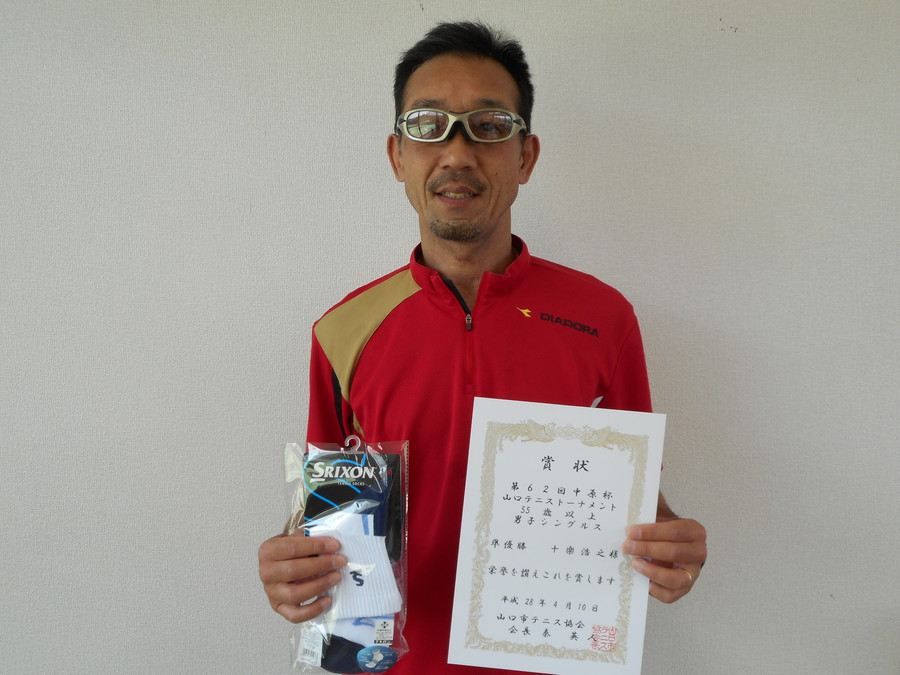 DIADORA
SRIXON
TENNIS SOCKS
賞状
第62回中原杯
山口テニストーナメント
55歳以上
男子シングルス
準優勝 十楽浩之様
栄誉を讃えこれを賞します
平成28年4月10日
山口市テニス協会
会長 秦 英